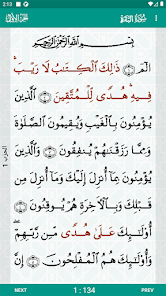 2:13
سُورَةُ البَقَرَة الجزء الأول
بِسْمِ اللَّهِ الرَّحْمَٰنِ الرَّحِيمِ
الٓمٓ ۝ ذَٰلِكَ ٱلْكِتَٰبُ لَا رَيْبَ ۛ
فِيهِ ۛ هُدًى لِّلْمُتَّقِينَ ۝ ٱلَّذِينَ
يُؤْمِنُونَ بِٱلْغَيْبِ وَيُقِيمُونَ ٱلصَّلَوٰةَ
وَمِمَّا رَزَقْنَٰهُمْ يُنفِقُونَ ۝ وَٱلَّذِينَ
يُؤْمِنُونَ بِمَآ أُنزِلَ إِلَيْكَ وَمَآ أُنزِلَ مِن
قَبْلِكَ وَبِٱلْءَاخِرَةِ هُمْ يُوقِنُونَ ۝
أُو۟لَٰٓئِكَ عَلَىٰ هُدًى مِّن رَّبِّهِمْ ۖ
وَأُو۟لَٰٓئِكَ هُمُ ٱلْمُفْلِحُونَ ۝
الحزب 1
NEXT 1 : 134 PREV